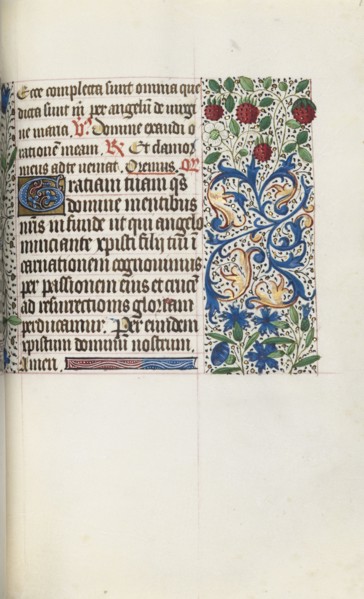 Ecce completa sunt omnia que
dicta sunt p angelū de virgi
ne maria. V̸. Domine exaudi o
rationē meam. R̸ Et clamor
meus ad te veniat. Oremus.
Gratiam tuam q̄s
domine mentibus
nr̄is infunde ut qui angelo
nunciante xp̄isti filij tui ī
carnationem cognouimus
per passionem eius et crucē
ad resurrectionis gloriam
perducamur. Per eundem
xp̄istum dominū nostrum.
Amen.